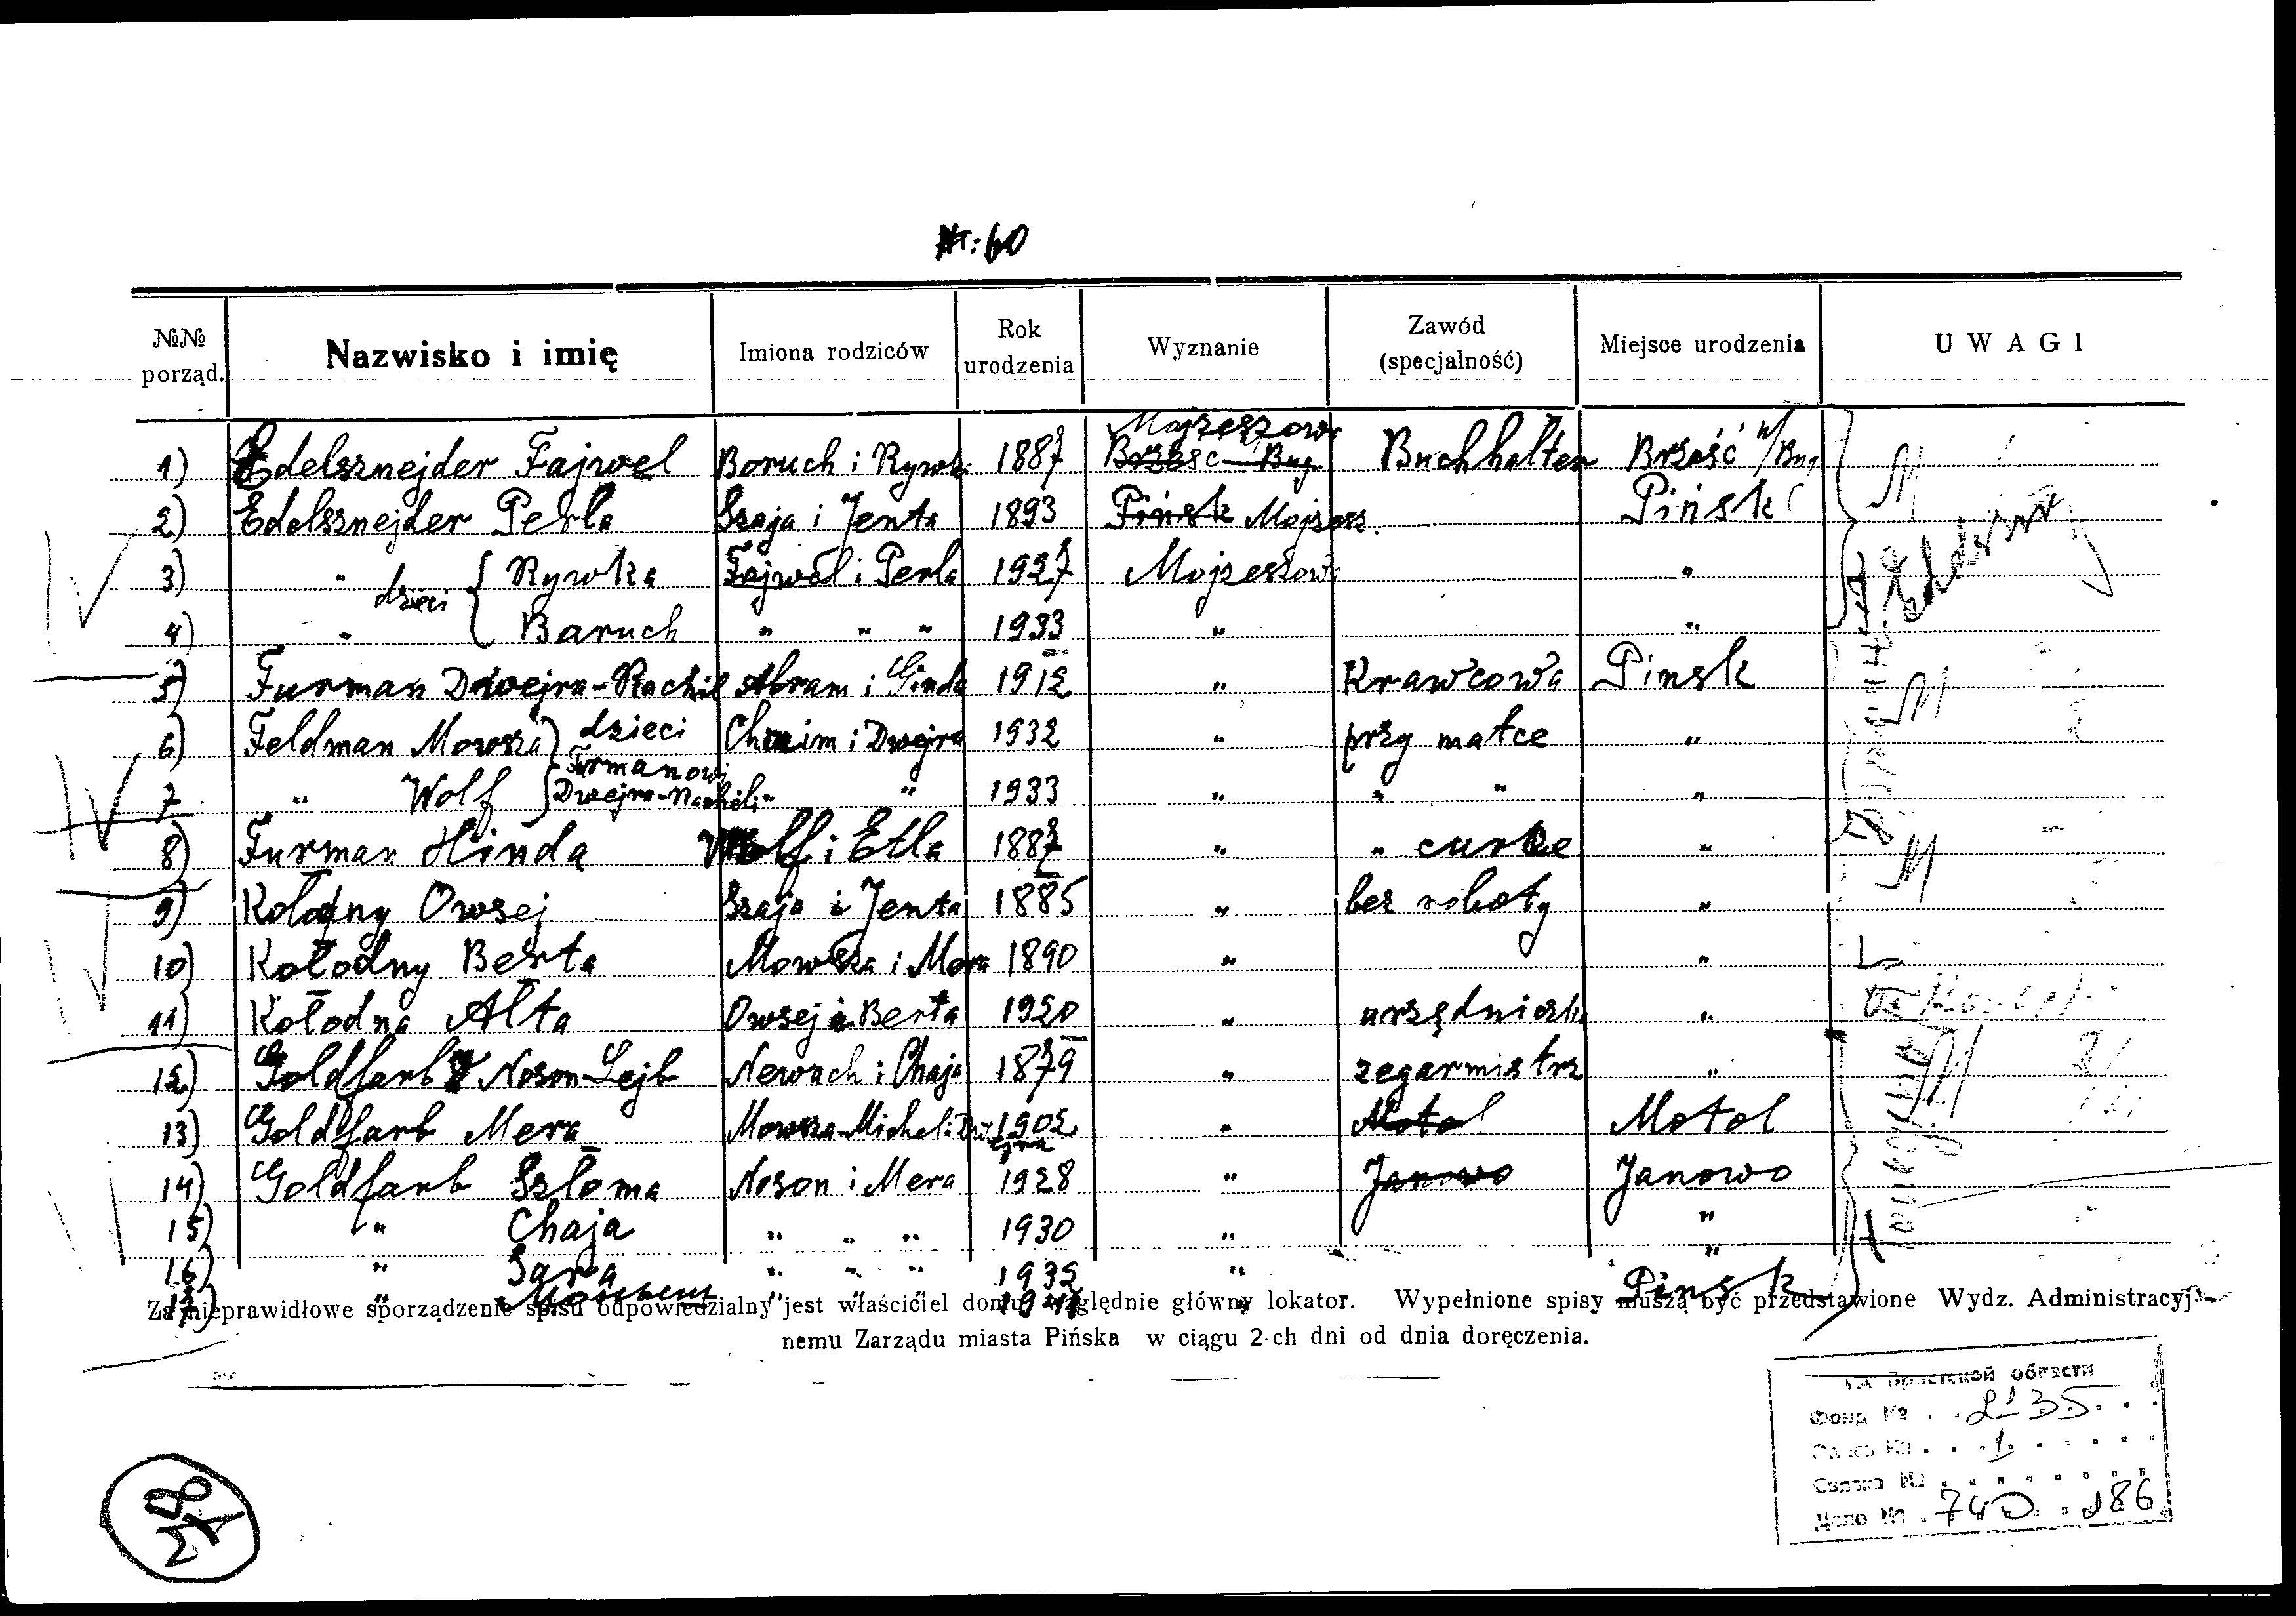 №: 60
№№ porząd. Nazwisko i imię Imiona rodziców Rok urodzenia Wyznanie Zawód (specjalność) Miejsce urodzenia U W A G I
Mojżeszow.
1) Edelsznejder Fajwel Boruch i Rywk. 1887 Brześć Bug. Buchhalter Brześć n/Bug
2) Edelsznejder Perla Szaja i Jenta 1893 Pińsk Mojżesz. Pińsk
3) " dzieci { Rywka Fajwel i Perla 1927 Mojżeszow. "
4) " Baruch " " " 1933 " "
5) Furman Dwejra-Rachil Abram i Ginda 1912 " Krawcowa Pinsk
6) Feldman Mowsza } dzieci Chaim i Dwejra 1932 " przy matce "
Furmanowi
7 " Wolf Dwejra-Racheli " " 1933 " " " "
8) Furman Hinda Wolf i Etla 1887 " " curke "
9) Kołodny Owsej Szaja i Jenta 1885 " bez roboty "
10) Kołodny Berta Mowsza i Mera 1890 " "
11) Kołodna Alta Owsej i Berta 1920 " urzędniczk. "
12) Goldfarb Noson-Lejb Newach i Chaja 1879 " zegarmistrz "
13) Goldfarb Mera Mowsza-Michel i Dwejra 1902 " Motol Motol
14) Goldfarb Szloma Noson i Mera 1928 " Janowo Janowo
15) " Chaja " " " 1930 " "
16) " Sara " " " 1932 " "
17) " " " " 1941 " Pinsk
Za nieprawidłowe sporządzenie spisu odpowiedzialny jest właściciel domu, względnie główny lokator. Wypełnione spisy muszą być przedstawione Wydz. Administracyj-
nemu Zarządu miasta Pińska w ciągu 2-ch dni od dnia doręczenia.
ГА Брестской области
Фонд № 2135
Опись № 1
Связка №
Дело № 740 186